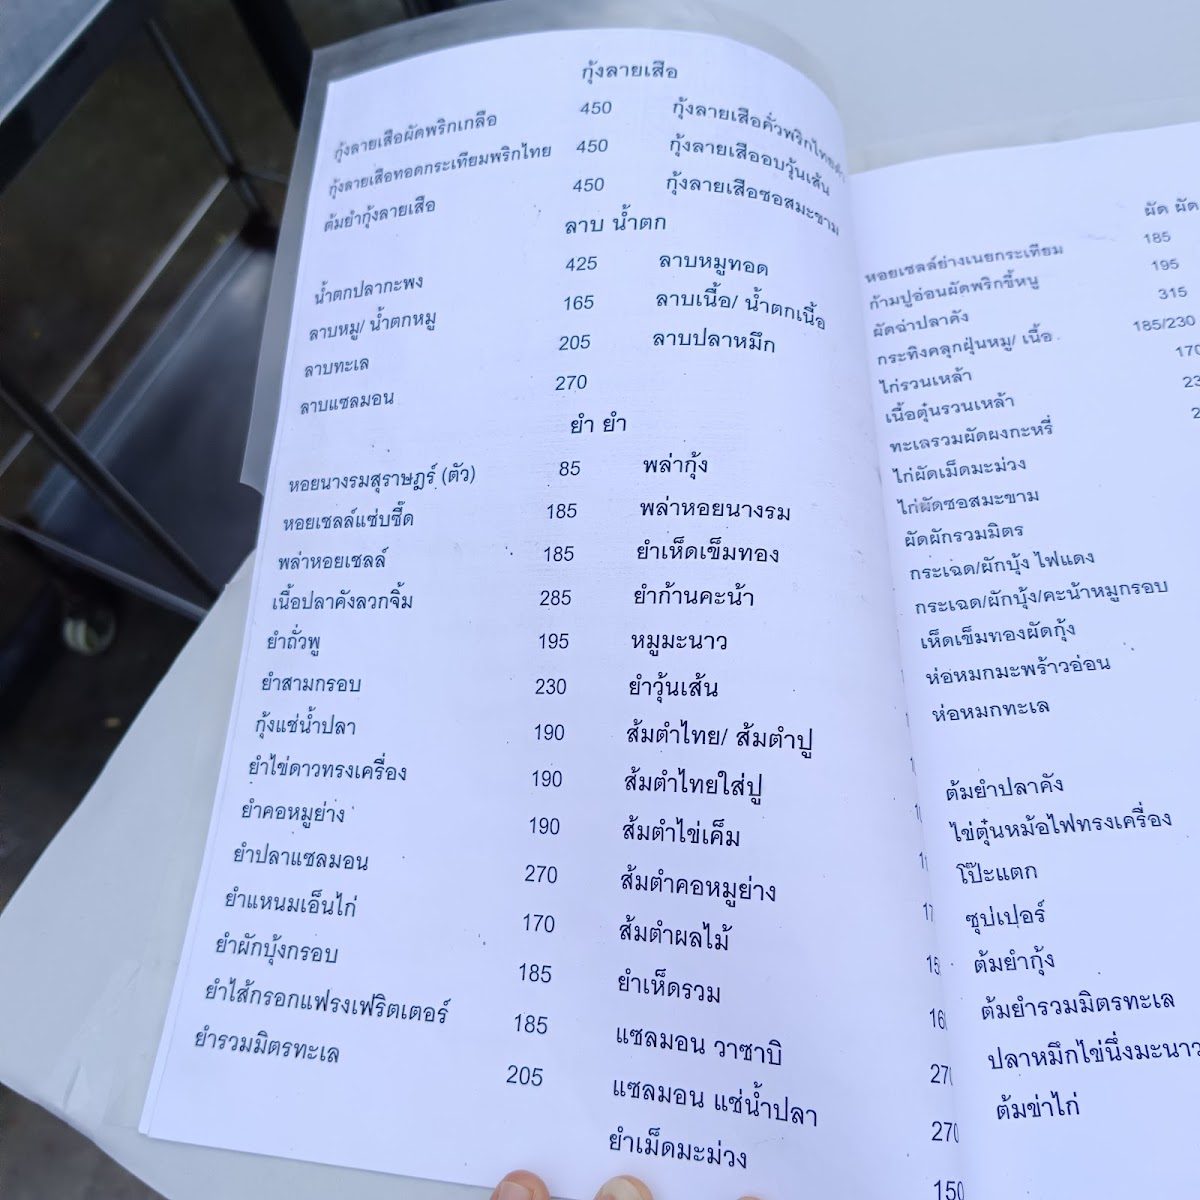 กุ้งลายเสือ
กุ้งลายเสือผัดพริกเกลือ 450 กุ้งลายเสือคั่วพริกไทยดำ
กุ้งลายเสือทอดกระเทียมพริกไทย 450 กุ้งลายเสืออบวุ้นเส้น
ต้มยำกุ้งลายเสือ 450 กุ้งลายเสือซอสมะขาม
ลาบ น้ำตก
น้ำตกปลากะพง 425 ลาบหมูทอด
ลาบหมู/ น้ำตกหมู 165 ลาบเนื้อ/ น้ำตกเนื้อ
ลาบทะเล 205 ลาบปลาหมึก
ลาบแซลมอน 270
ยำ ยำ
หอยนางรมสุราษฎร์ (ตัว) 85 พล่ากุ้ง
หอยเชลล์แซ่บซี๊ด 185 พล่าหอยนางรม
พล่าหอยเชลล์ 185 ยำเห็ดเข็มทอง
เนื้อปลาคังลวกจิ้ม 285 ยำก้านคะน้า
ยำถั่วพู 195 หมูมะนาว
ยำสามกรอบ 230 ยำวุ้นเส้น
กุ้งแช่น้ำปลา 190 ส้มตำไทย/ ส้มตำปู
ยำไข่ดาวทรงเครื่อง 190 ส้มตำไทยใส่ปู
ยำคอหมูย่าง 190 ส้มตำไข่เค็ม
ยำปลาแซลมอน 270 ส้มตำคอหมูย่าง
ยำแหนมเอ็นไก่ 170 ส้มตำผลไม้
ยำผักบุ้งกรอบ 185 ยำเห็ดรวม
ยำไส้กรอกแฟรงเฟริตเตอร์ 185 แซลมอน วาซาบิ 270
ยำรวมมิตรทะเล 205 แซลมอน แช่น้ำปลา 270
ยำเม็ดมะม่วง 150
ผัด ผัด
หอยเชลล์ย่างเนยกระเทียม 185
ก้ามปูอ่อนผัดพริกขี้หนู 195
ผัดฉ่าปลาคัง 315
กระทิงคลุกฝุ่นหมู/ เนื้อ 185/230
ไก่รวนเหล้า 170
เนื้อตุ๋นรวนเหล้า
ทะเลรวมผัดผงกะหรี่
ไก่ผัดเม็ดมะม่วง
ไก่ผัดซอสมะขาม
ผัดผักรวมมิตร
กระเฉด/ผักบุ้ง ไฟแดง
กระเฉด/ผักบุ้ง/คะน้าหมูกรอบ
เห็ดเข็มทองผัดกุ้ง
ห่อหมกมะพร้าวอ่อน
ห่อหมกทะเล
ต้มยำปลาคัง
ไข่ตุ๋นหม้อไฟทรงเครื่อง
โป๊ะแตก
ซุปเปอร์
ต้มยำกุ้ง
ต้มยำรวมมิตรทะเล
ปลาหมึกไข่นึ่งมะนาว
ต้มข่าไก่